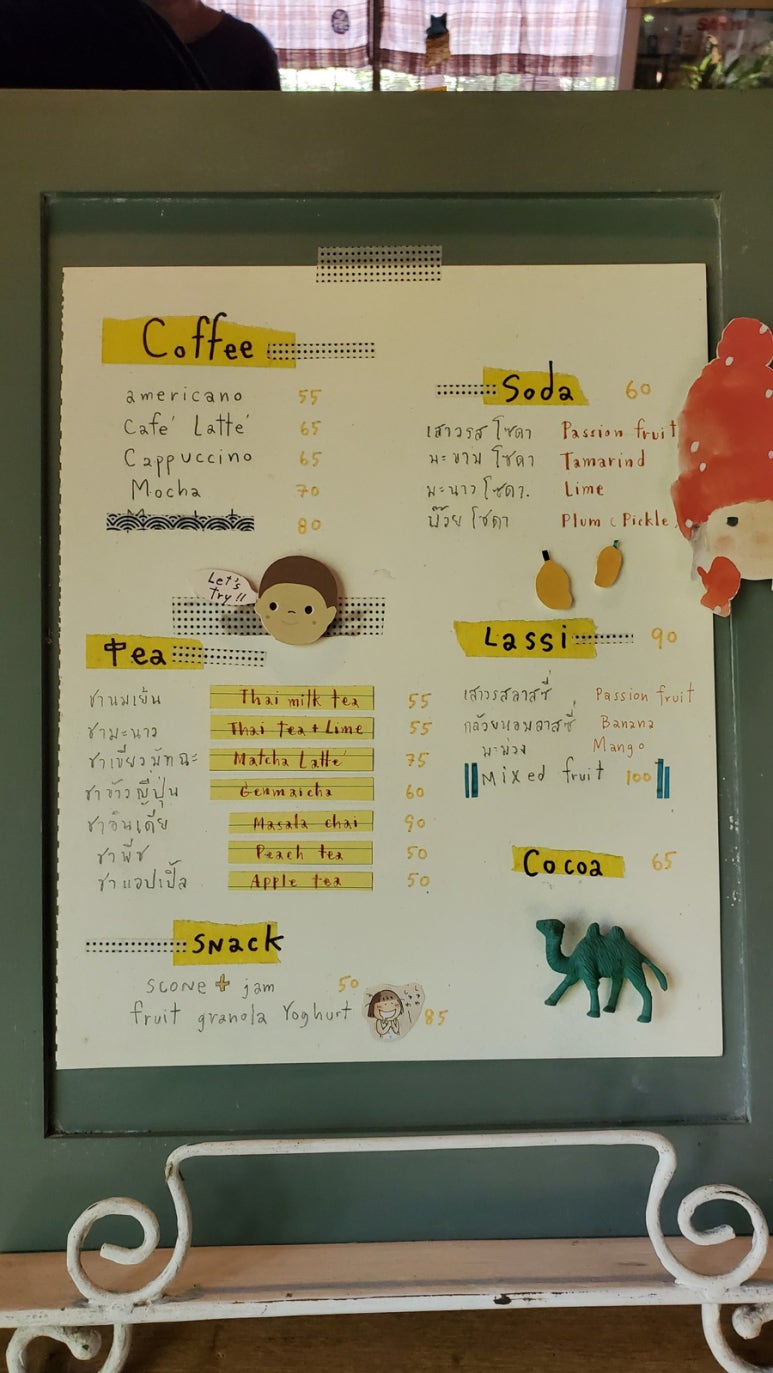 Coffee
americano 55
Café Latté 65
Cappuccino 65
Mocha 70
80
Soda 60
เสาวรส โซดา Passion fruit
มะขาม โซดา Tamarind
มะนาว โซดา. Lime
บ๊วย โซดา Plum (Pickle)
Let's
try!!
Tea
ชานมเย็น Thai milk tea 55
ชามะนาว Thai tea + Lime 55
ชาเขียวมัทฉะ Matcha Latté 75
ชาข้าวญี่ปุ่น Genmaicha 60
ชาอินเดีย Masala chai 90
ชาพีช Peach tea 50
ชาแอปเปิ้ล Apple tea 50
Lassi 90
เสาวรสลาสซี่ Passion fruit
กล้วยหอมลาสซี่ Banana
มะม่วง Mango
Mixed fruit 100
Cocoa 65
Snack
scone + jam 50
fruit granola Yoghurt 85